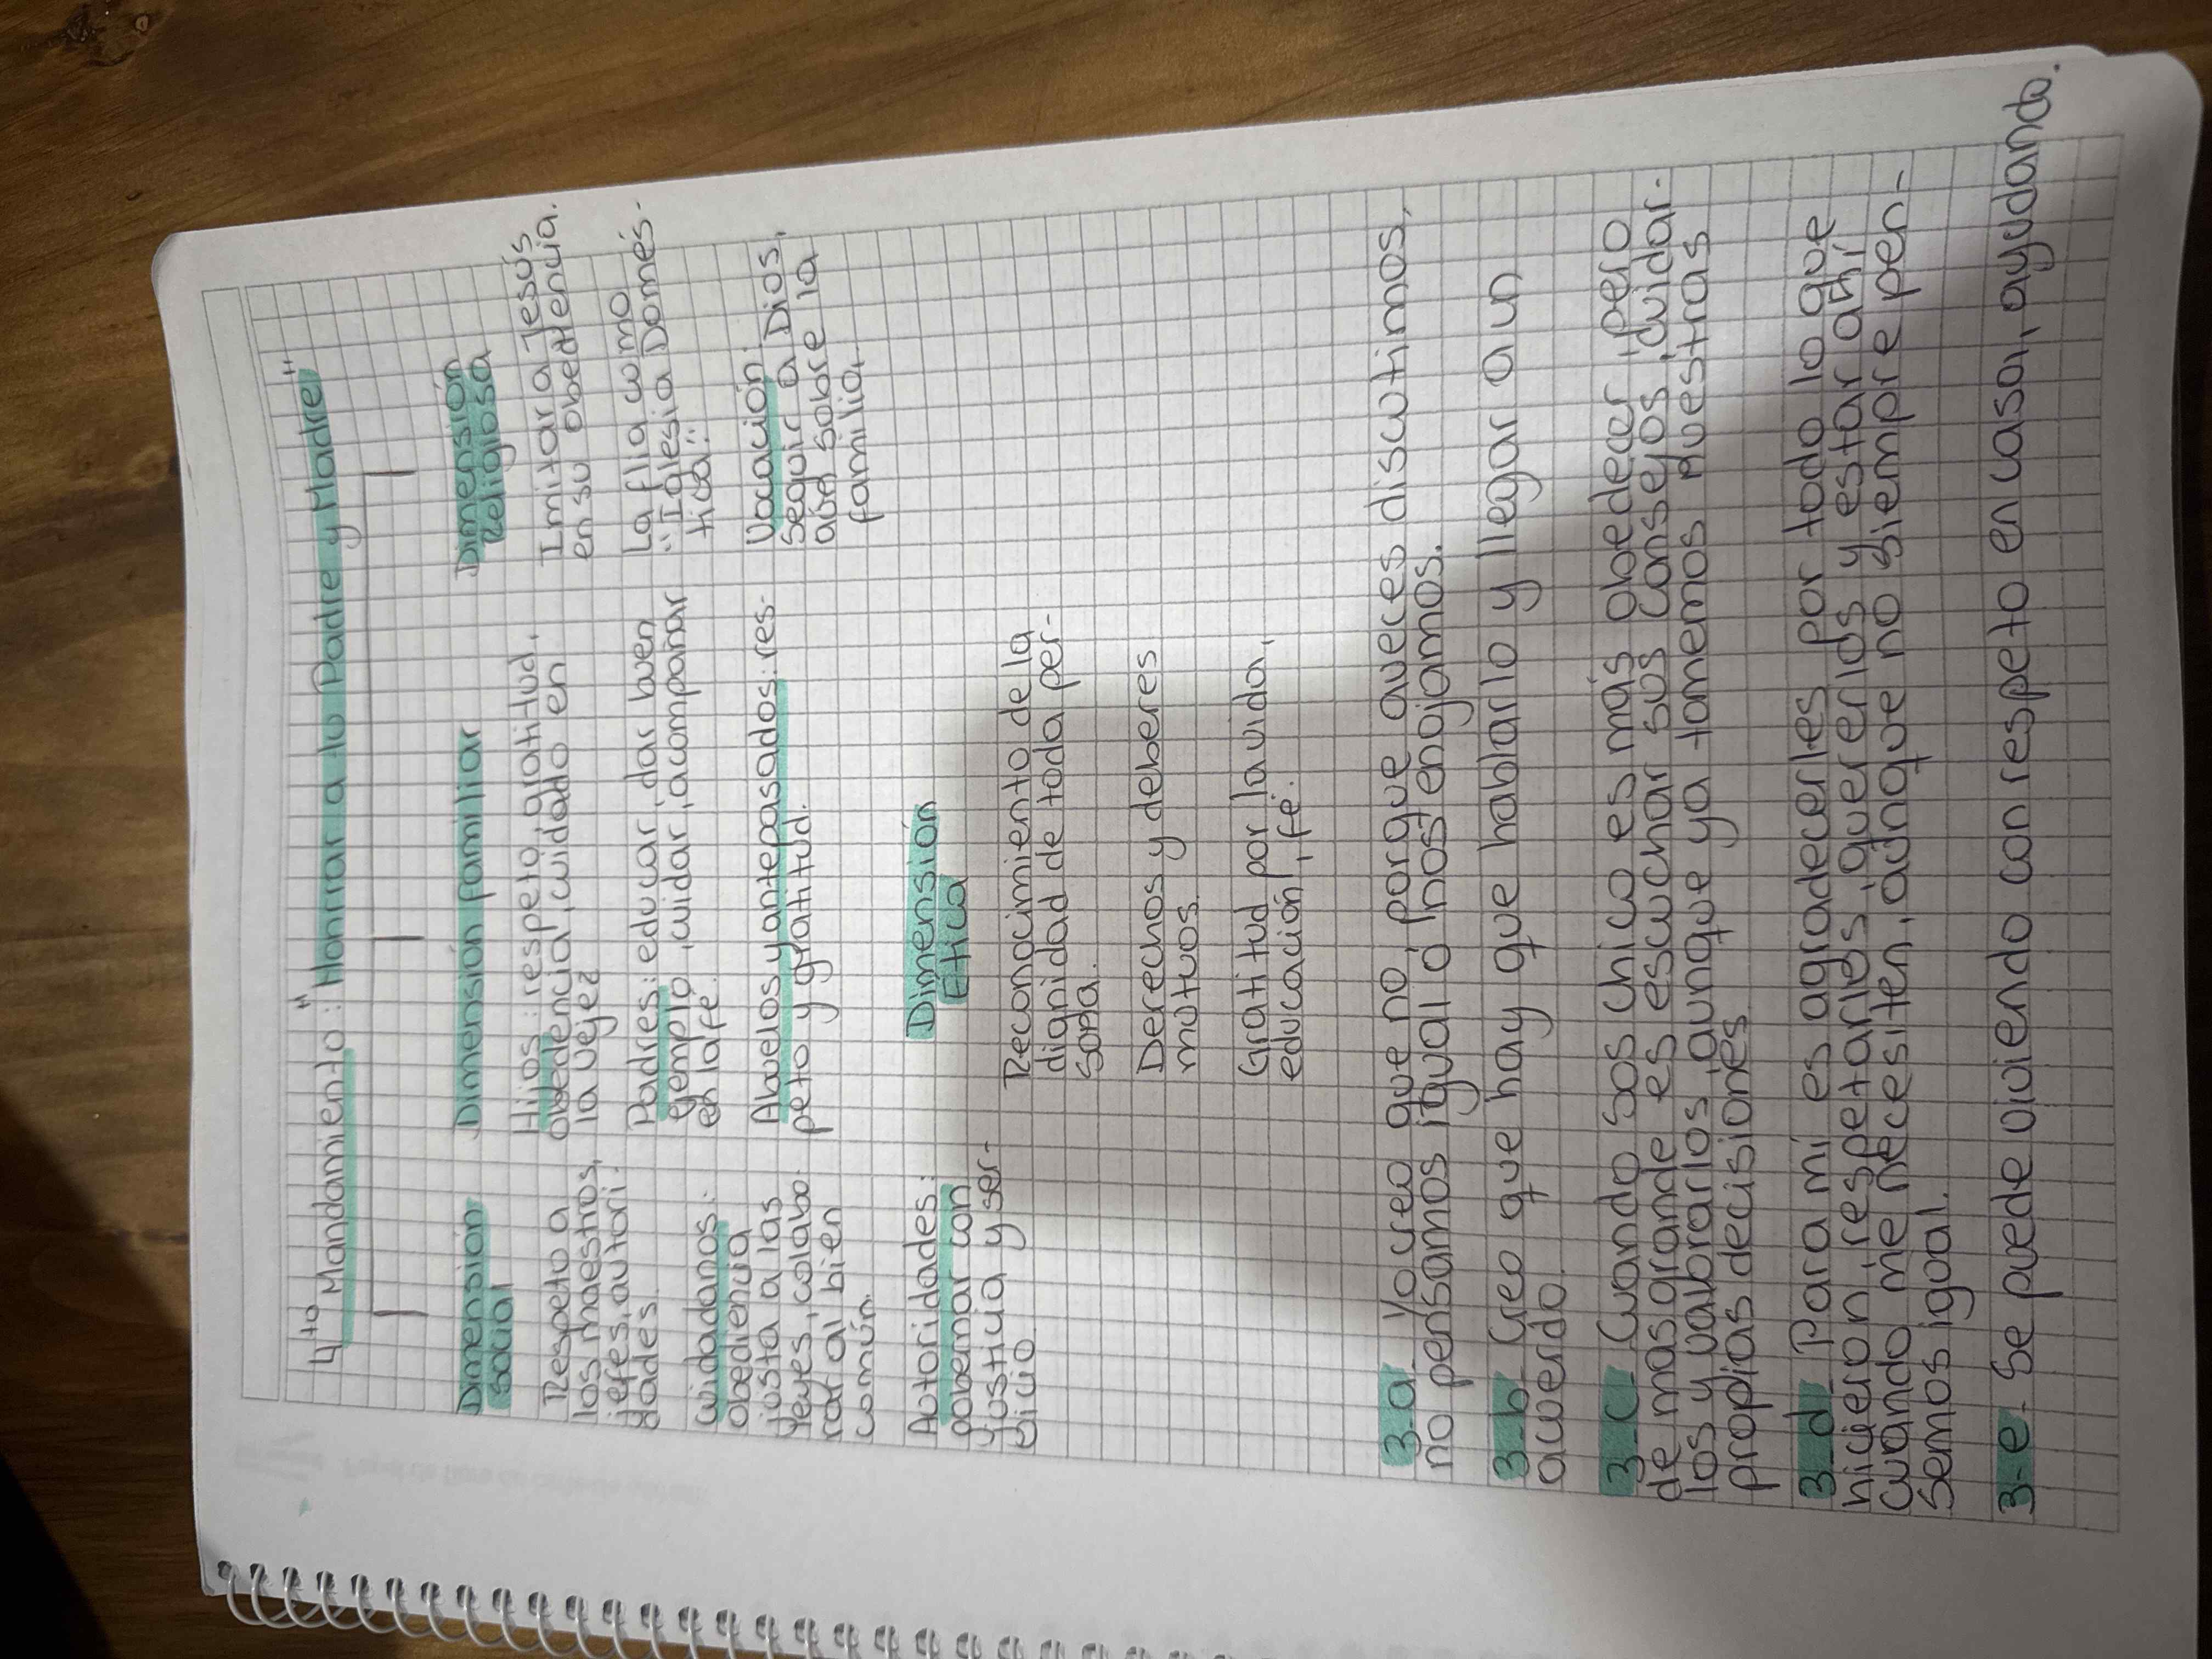 4to Mandamiento: "Honrar a tu Padre y Madre"
Dimensión
social
Respeto a
los maestros,
jefes, autori-
dades.
Ciudadanos:
obediencia
justa a las
leyes, colabo-
rar al bien
común.
Autoridades:
gobernar con
justicia y ser-
vicio
Dimensión familiar
Hijos: respeto, gratitud,
obediencia, cuidado en
la vejez
Padres: educar, dar buen
ejemplo, cuidar, acompañar
en la fe.
Abuelos y antepasados: res-
peto y gratitud.
Dimensión
Religiosa
Imitar a Jesús
en su obediencia.
La flia como
"Iglesia Domés-
tica".
Vocación:
seguir a Dios,
aún sobre la
familia.
Dimensión
Ética
Reconocimiento de la
dignidad de toda per-
sona.
Derechos y deberes
mutuos.
Gratitud por la vida,
educación, fe.
3-a- Yo creo que no, porque aveces discutimos,
no pensamos igual o nos enojamos.
3-b- Creo que hay que hablarlo y llegar a un
acuerdo.
3-C- Cuando sos chico es más obedecer, pero
de mas grande es escuchar sus consejos, cuidar-
los y valorarlos, aunque ya tomemos nuestras
propias decisiones
3-d- Para mi es agradecerles por todo lo que
hicieron, respetarlos, quererlos y estar ahí
cuando me necesiten, aunque no siempre pen-
semos igual.
3-e- Se puede viviendo con respeto en casa, ayudando.